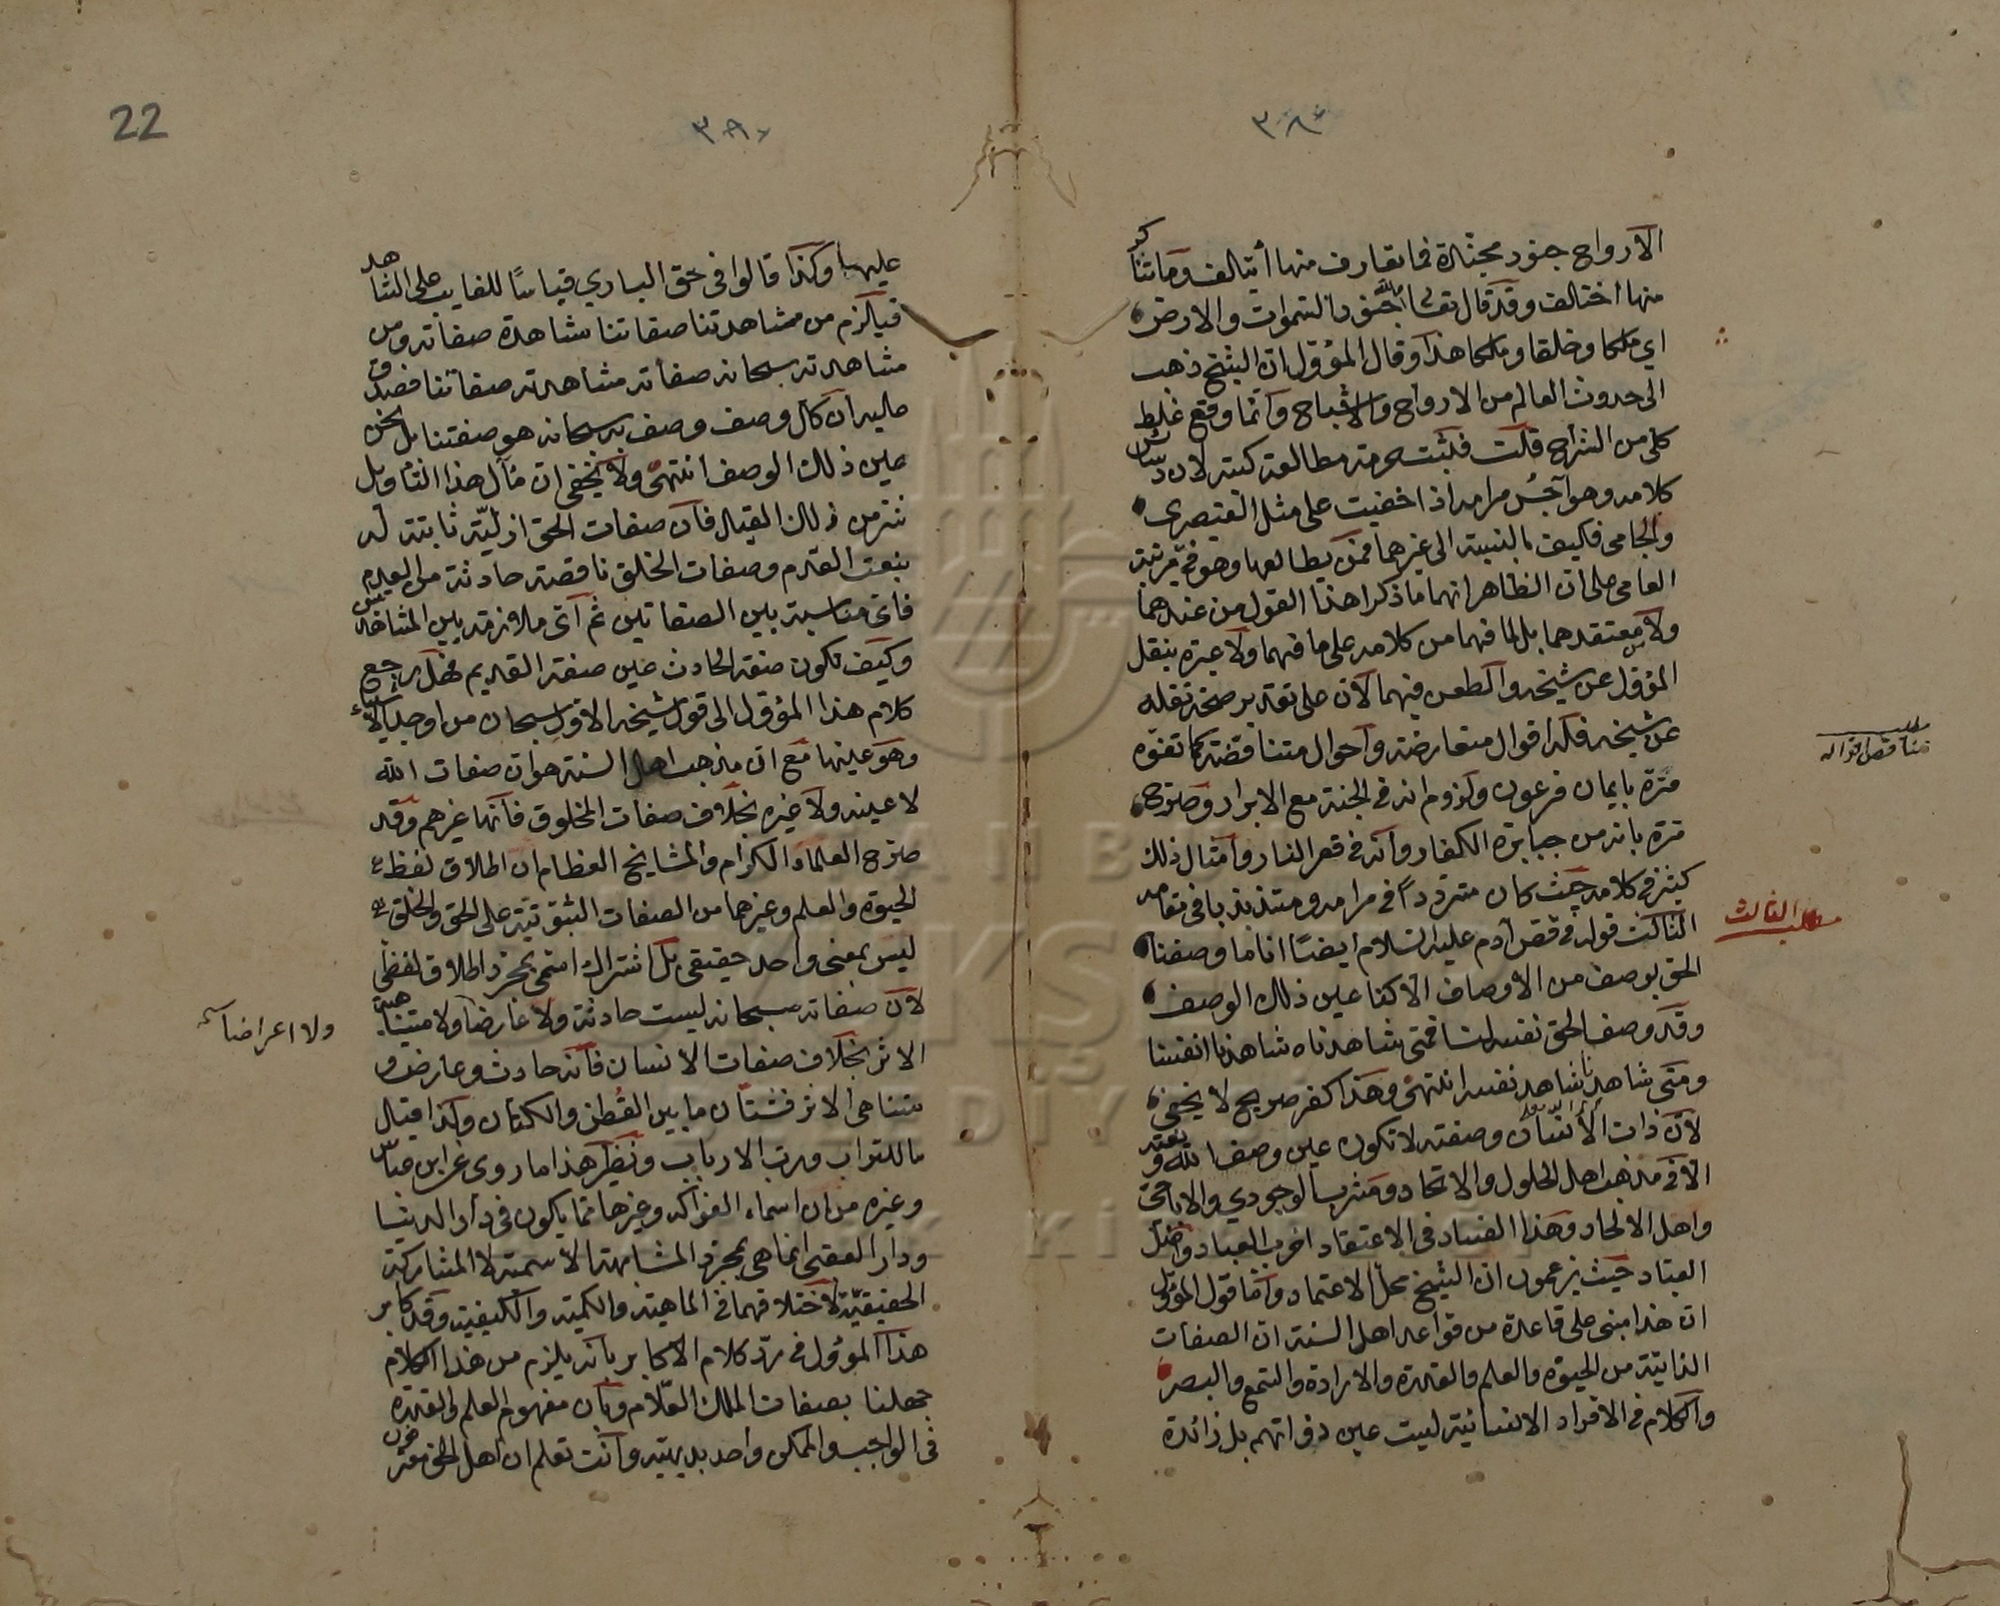 ٣٨٩
الارواح جنود مجندة فما تعارف منها أيتالف وما تناكر
منها اختالف وقد قال تعالى ولله جنود السموات والارض
اى ملكا وخلقا وملكا هذا وقال المؤول ان الشيخ ذهب
الى حدوث العالم من الارواح والاشباح وانما وقع غلط
كلى من الشراح قلت فثبت حرمة مطالعة كتبه لان دسائس
كلامه وهواجس مرامه اذا خفيت على مثل القيصرى
والجامى فكيف بالنسبة الى غيرهما فمن يطالعها وهو فى مرتبة
العامى على ان الظاهر انهما ما ذكرا هذا القول من عندهما
ولا من معتقدهما بل لما فهما من كلامه على ما فهما ولا عبرة بنقل
المؤول عن شيخه والطعن فيهما لان على تقدير صحة نقله
عن شيخه فله اقوال متعارضة واحوال متناقضة كما تفوه
مرة بايمان فرعون ولزوم انه فى الجنة مع الابرار وصرح
مرة بانه من جبابرة الكفار وانه فى قعر النار وامثال ذلك
كثير فى كلامه حيث كان مترددا فى مرامه ومتذبذبا فى مقامه
الثالث قوله فى فص آدم عليه السلام ايضا انا ما وصفنا
الحق بوصف من الاوصاف الا كنا عين ذلك الوصف
وقد وصف الحق نفسه لنا فمتى شاهدناه شاهدنا انفسنا
ومتى شاهدنا شاهد نفسه انتهى وهذا كفر صريح لا يخفى
لان ذات الانسان وصفته لا تكون عين وصف الله ونعته
الا فى مذهب اهل الحلول والاتحاد ومشرب الوجودي والاباحى
واهل الالحاد وهذا الفساد فى الاعتقاد اخرب العباد واضل
العباد حيث يزعمون ان الشيخ محل الاعتماد واما قول المؤول
ان هذا مبنى على قاعدة من قواعد اهل السنة ان الصفات
الذاتية من الحيوة والعلم والقدرة والارادة والسمع والبصر
والكلام فى الافراد الانسانية ليست عين ذواتهم بل زائدة
مطلب
تناقض اقواله
مطلب الثالث
22
٣٩٠
عليها وكذا قالوا فى حق البارى قياسا للغايب على الشاهد
فيلزم من مشاهدتنا صفاتنا مشاهدة صفاته ومن
مشاهدته سبحانه صفاته مشاهدته صفاتنا فصدق
عليه ان كل وصف وصف به سبحانه هو صفتنا بل نحن
عين ذلك الوصف انتهى ولا يخفى ان مآل هذا التأويل
شر من ذلك القيل فان صفات الحق ازلية ثابتة له
بنعت القدم وصفات الخلق ناقصة حادثة من العدم
فاى مناسبة بين الصفاتين ثم اى ملازمة بين المشاهدتين
وكيف تكون صفة الحادث عين صفة القديم فهل يرجع
كلام هذا المؤول الى قول شيخه الاول سبحان من اوجد الاشياء
وهو عينها مع ان مذهب اهل السنة هو ان صفات الله
لا عينه ولا غيره بخلاف صفات المخلوق فانها غيرهم وقد
صرح العلماء الكرام والمشايخ العظام ان اطلاق لفظ
الحيوة والعلم وغيرهما من الصفات الثبوتية على الحق والخلق
ليس بمعنى واحد حقيقى بل اشتراك اسمى بمجرد اطلاق لفظى
لان صفاته سبحانه ليست حادثة ولا عارضا ولا متناهية
الاثر بخلاف صفات الانسان فانه حادث وعارض و
متناهى الاثر فشتان ما بين القطن والكتان وكذا يقال
ما للتراب ورب الارباب ونظير هذا ما روى عن ابن عباس
وغيره من ان اسماء الفواكه وغيرها مما يكون فى دار الدنيا
ودار العقبى انما هى بمجرد المشابهة الاسمية لا المشاركة
الحقيقية لاختلافهما فى الماهية والكمية والكيفية وقد كابر
هذا المؤول فى رد كلام الاكابر بانه يلزم من هذا الكلام
جهلنا بصفات الملك العلام وبان مفهوم العلم والقدرة
فى الواجب والممكن واحد بديهية وانت تعلم ان اهل الحق معترفون
ولا اعراضا